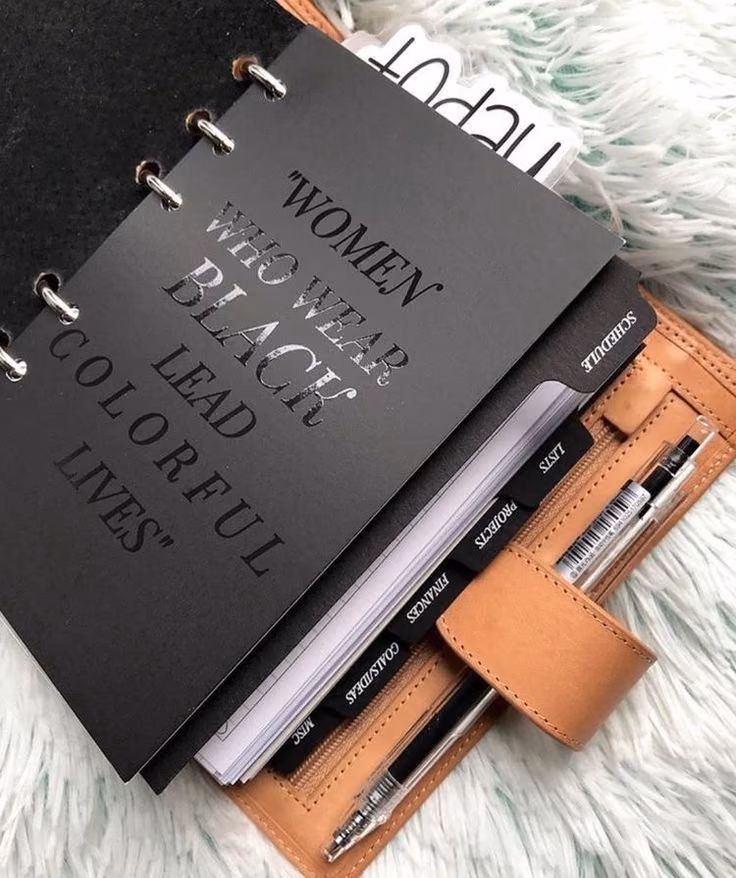 today
"WOMEN
WHO WEAR
BLACK
LEAD
COLORFUL
LIVES"
SCHEDULE
LISTS
PROJECTS
FINANCES
GOALS/IDEAS
MISC